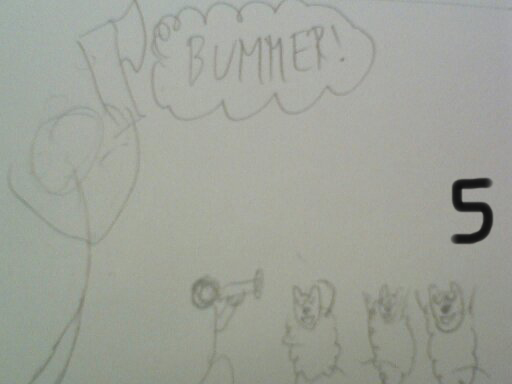 BUMMER!
5